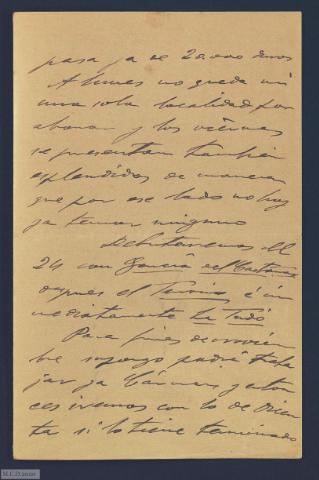 pasa ya de 20.000 duros
A lunes no queda ni
una sola localidad por
abonar y los viernes
se presentan tambien
esplendidos de manera
que por ese lado no hay
ya temor ninguno
Debutaremos el
24 con García del Castañar
despues el            é in
mediatamente La
Para fines de noviem
bre supongo podrá traba
jar ya Cármen y enton
ces iremos con lo de Vicen
ta si lo tiene terminado
M.C.D. 2022